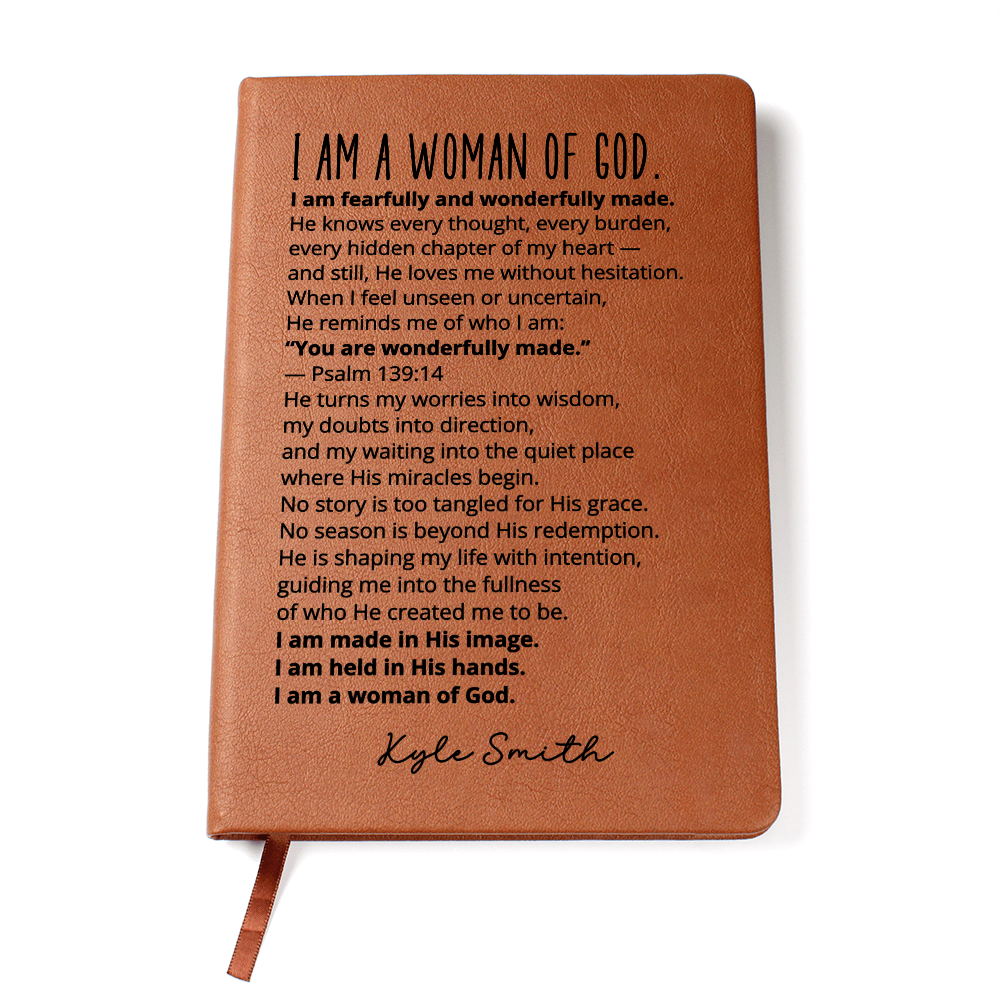 I AM A WOMAN OF GOD.
I am fearfully and wonderfully made.
He knows every thought, every burden,
every hidden chapter of my heart —
and still, He loves me without hesitation.
When I feel unseen or uncertain,
He reminds me of who I am:
“You are wonderfully made.”
— Psalm 139:14
He turns my worries into wisdom,
my doubts into direction,
and my waiting into the quiet place
where His miracles begin.
No story is too tangled for His grace.
No season is beyond His redemption.
He is shaping my life with intention,
guiding me into the fullness
of who He created me to be.
I am made in His image.
I am held in His hands.
I am a woman of God.
Kyle Smith